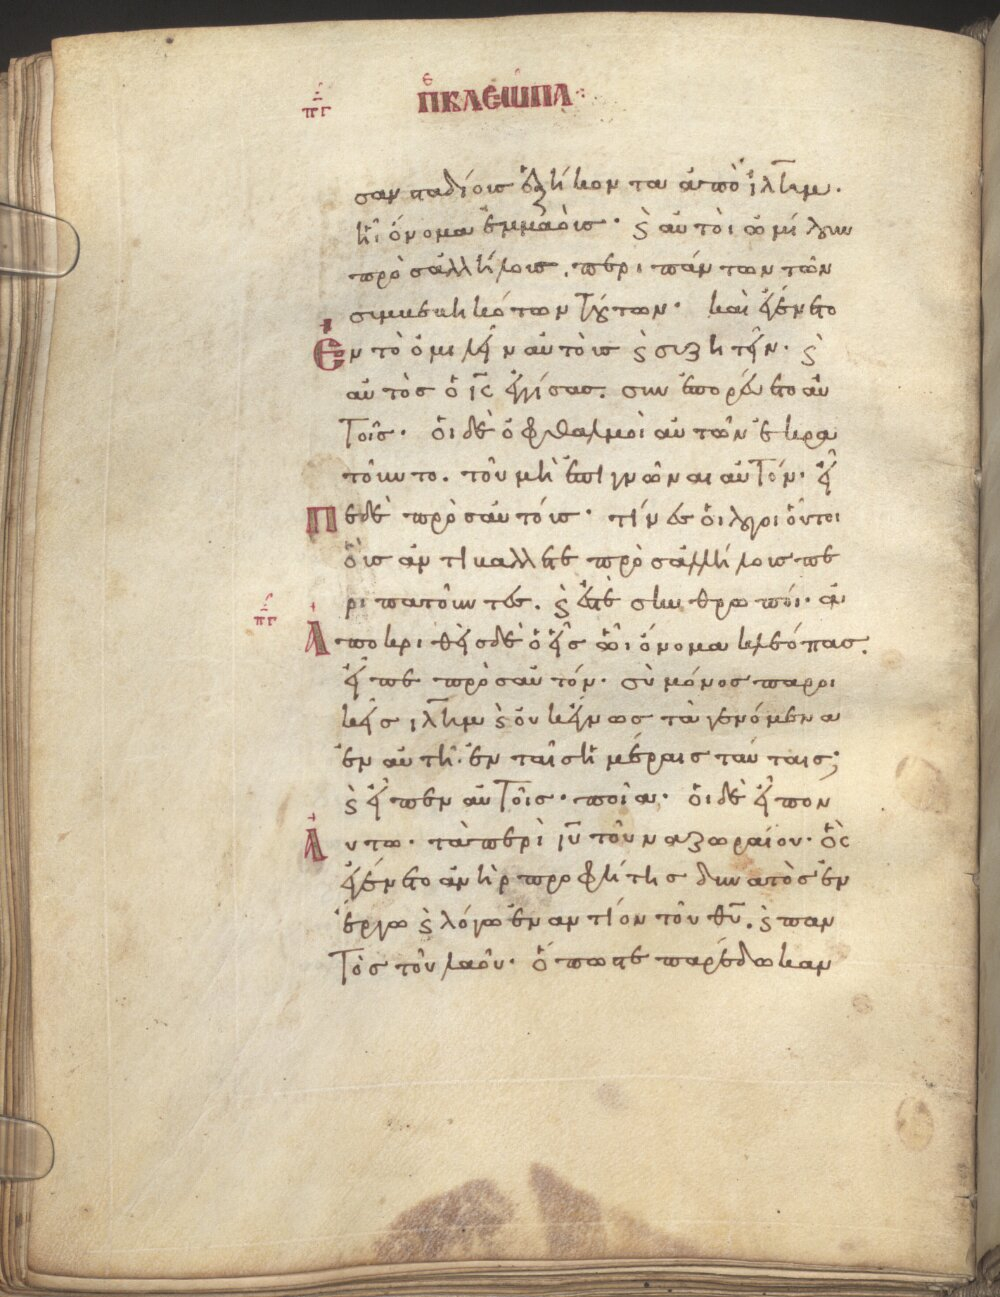 πγ πε κλεώπα:
σαν παδίοισ ἑξίκοντα ἀπὸ ἱλημ.
ἧ ὄνομα ἐμμαὸισ· ϗ αὐτὸι ὁμίλουν
πρὸσ ἀλλήλοισ. περι πάντων τῶν
σιμβεβηκότων τούτων· καὶ ἐγένετο
ἐν τὸ ὁμιλεῖν αὐτὸισ ϗ σιζητεῖν· ϗ
αὐτὸσ ὁ ις ἐγγίσασ. συνεπορέυετο αὐ
τοῖς· ὁι δὲ ὀφθαλμοὶ αὐτῶν ἐκρα
τοῦντο. τοῦ μὴ ἐπιγνῶναι αὐτόν· εἶ
πε δὲ πρὸσ αὐτόισ· τίνεσ ὁι λόγοι ὁυτοι
ὁὶσ ἀντιβαλλετε πρὸσ ἀλλήλοισ πε
ριπατοῦντεσ. ϗ ἐστὲ σκυθρωποί· ἀ
πγ
Ἀποκριθεὶς δὲ ὁ εἷσ ὧι ὄνομα κλεόπας.
εἶπε πρὸσ αὐτόν· σὺ μόνοσ παροι
κεῖσ ιλημ ϗ οὐκ ἔγνωσ τὰ γενόμενα
ἐν αὐτῆ· ἐν ταῖσ ἡμέραισ ταύταισ;
ϗ εἶπεν αὐτοῖς· ποῖα· ὁι δὲ εἶπον
Ἀυτω· τὰ περὶ ιυ τοῦ ναζωραίου· ὃς
ἐγένετο ἀνὴρ προφήτησ δυνατὸσ ἐν
ἔργω ϗ λόγω ἐναντίον τοῦ θυ. ϗ παν
τὸς τοῦ λαοῦ· ὅπωστε παρέδωκαν